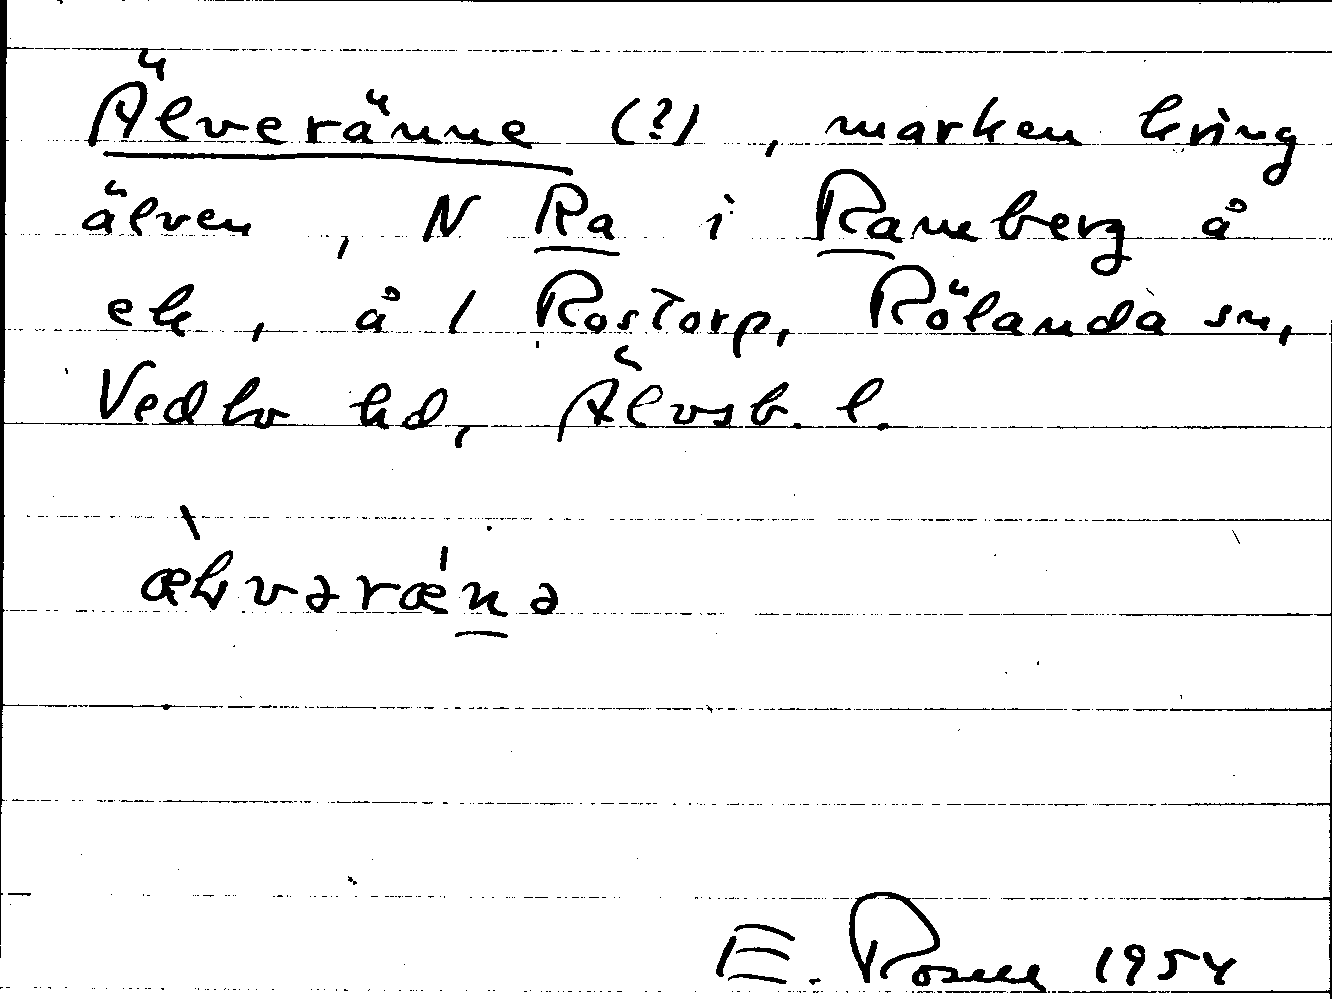 Älveränne (?), marken kring
älven, N Ra i Ramberg å
ek, å 1 Rostorp, Rölanda sn,
Vedbo hd, Älvsb. l.
E. Rosell 1954